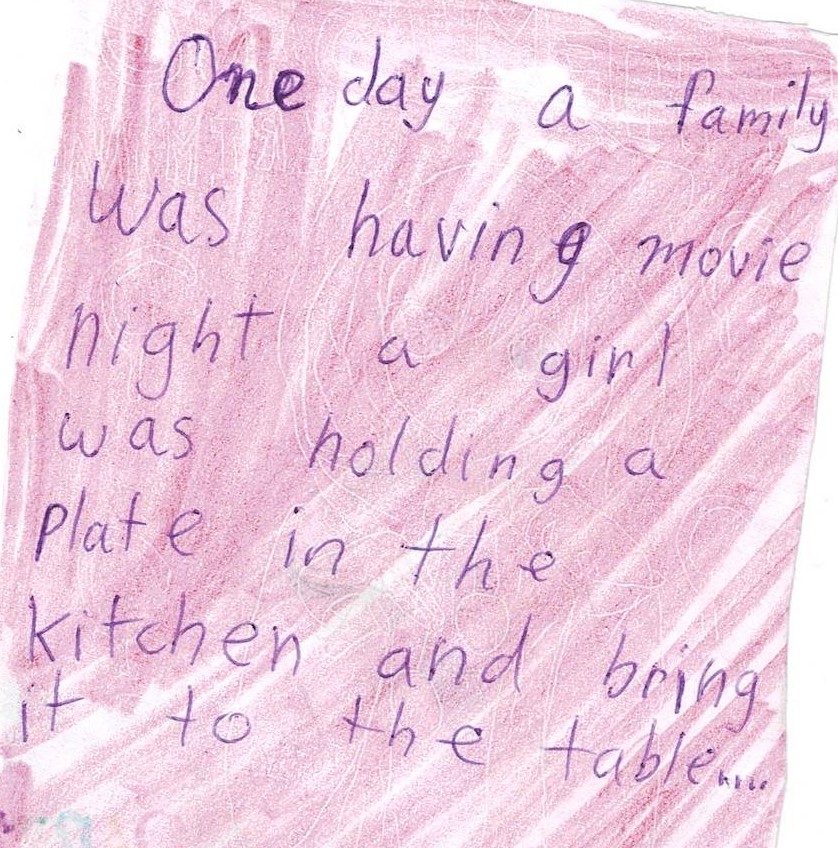 One day a family
was having movie
night a girl
was holding a
plate in the
kitchen and bring
it to the table.....